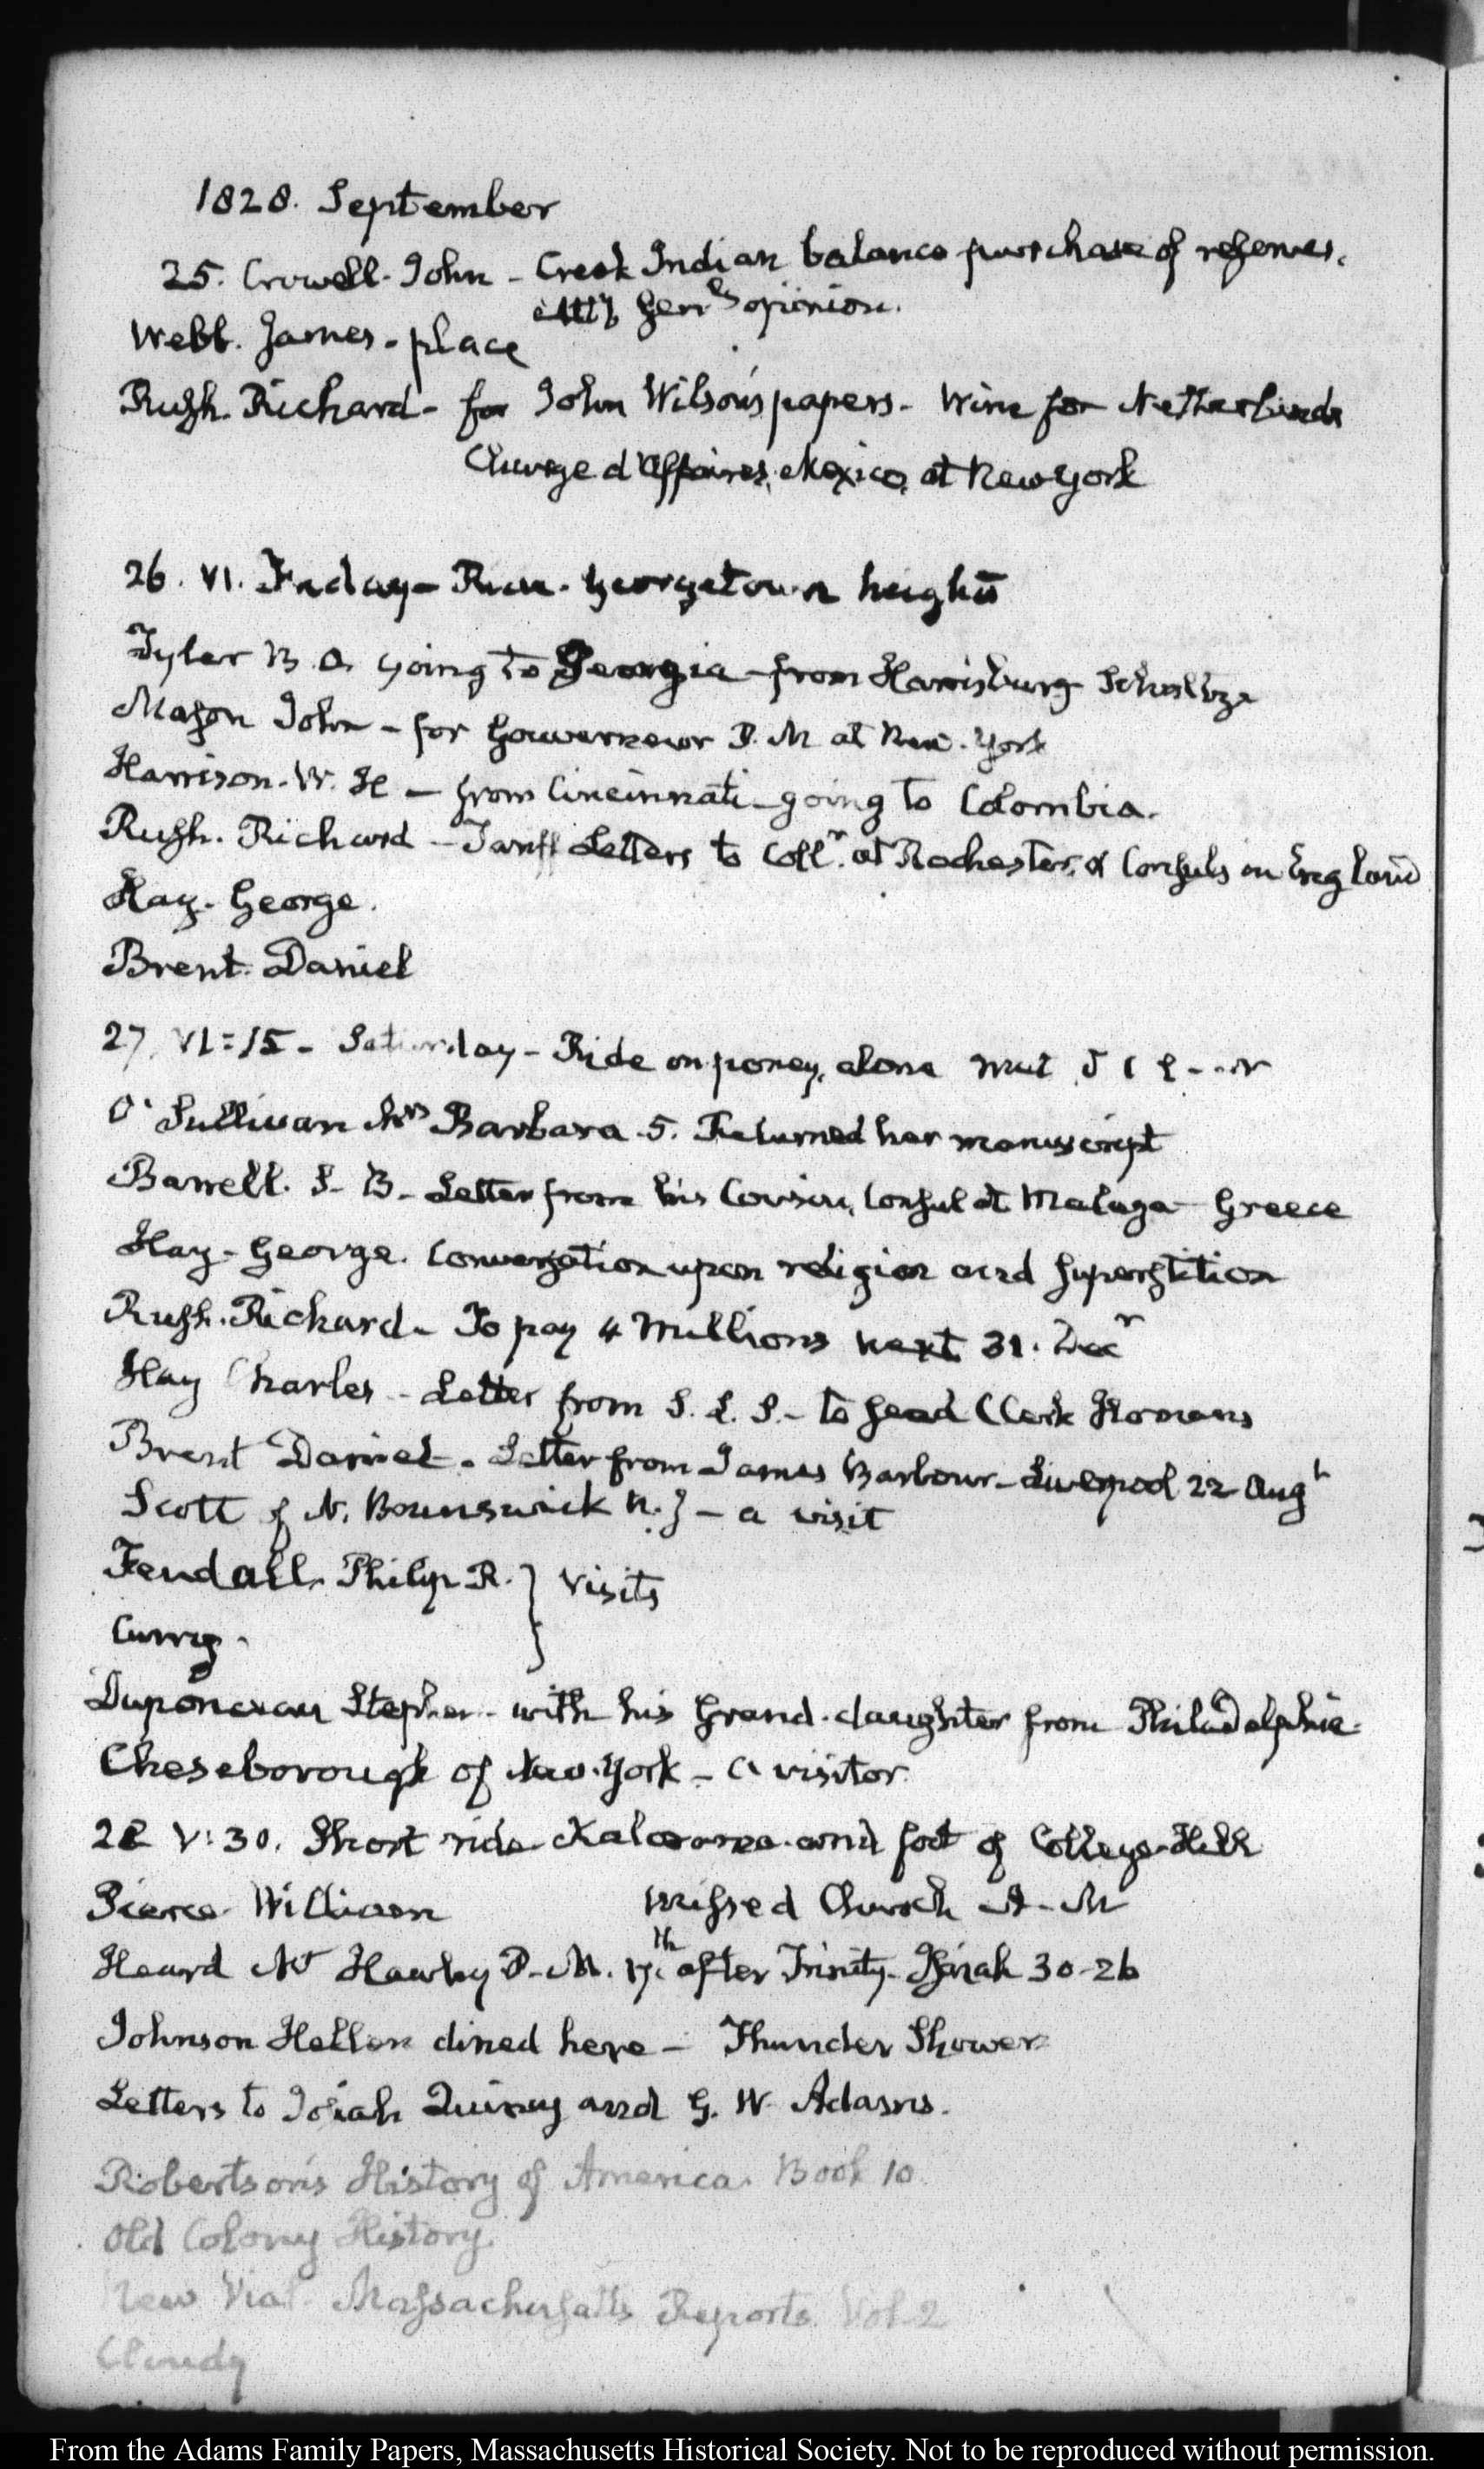 1828. September
25. Crowell. John - Creek Indian balance purchase of reserves.
Atty. Genls opinion.
Webb. James - place
Rush. Richard - for John Wilson's papers - Wine for Netherlands
Charge d'Affaires, Mexico, at New York
26. VI. Friday - Georgetown heights
Tyler B. O. going to Georgia - from Harrisburg
Mason John - for Gouverneur P. M at New-York
Harrison. W. H - from Cincinnati - going to Colombia.
Rush. Richard - Tariff Letters to Collr. at Rochester, & Consuls in England
Hay. George.
Brent. Daniel
27. VI:15 - Saturday - Ride on poney, alone met
O'Sullivan Mrs Barbara. 5. Returned her manuscript
Barrell. S. B. - Letter from his Cousin, Consul at Malaga - Greece
Hay - George. Conversation upon religion and superstition
Rush. Richard - To pay 4 Millions next 31. Decr
Hay Charles - Letter from S. L. S. - to head Clerk Homans
Brent Daniel - Letter from James Barbour - Liverpool 22 Augt
Scott of N. Brunswick N. J - a visit
Fendall. Philip R. } visits
Curry.
Duponceau Stephen - with his Grand-daughter from Philadelphia.
Cheseborough of New-York - a visitor.
28 V:30. Short ride Kalorama and foot of College-Hill
Pierce William Missed Church A-M
Heard Mr Hawley P-M. 17th. after Trinity - Isaiah 30-26
Johnson Hellen dined here - Thunder Shower
Letters to Josiah Quincy and G. W. Adams.
Robertson's History of America. Book 10
Old Colony History.
New Massachusetts Reports. Vol. 2
Cloudy
From the Adams Family Papers, Massachusetts Historical Society. Not to be reproduced without permission.